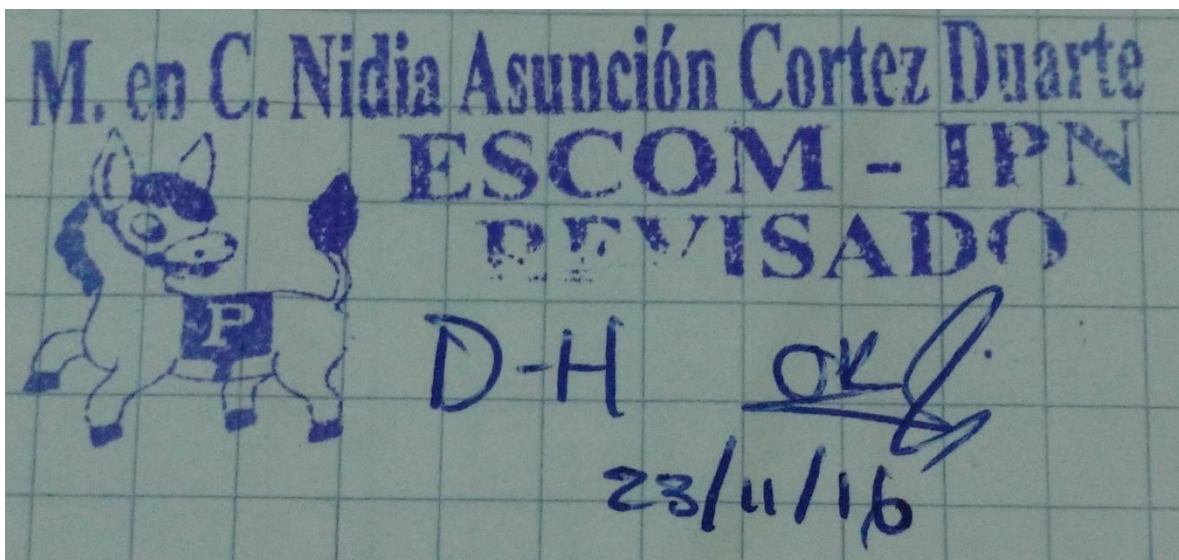 M. en C. Nidia Asunción Cortez Duarte
ESCOM - IPN
REVISADO
P
D-H OK
23/11/16